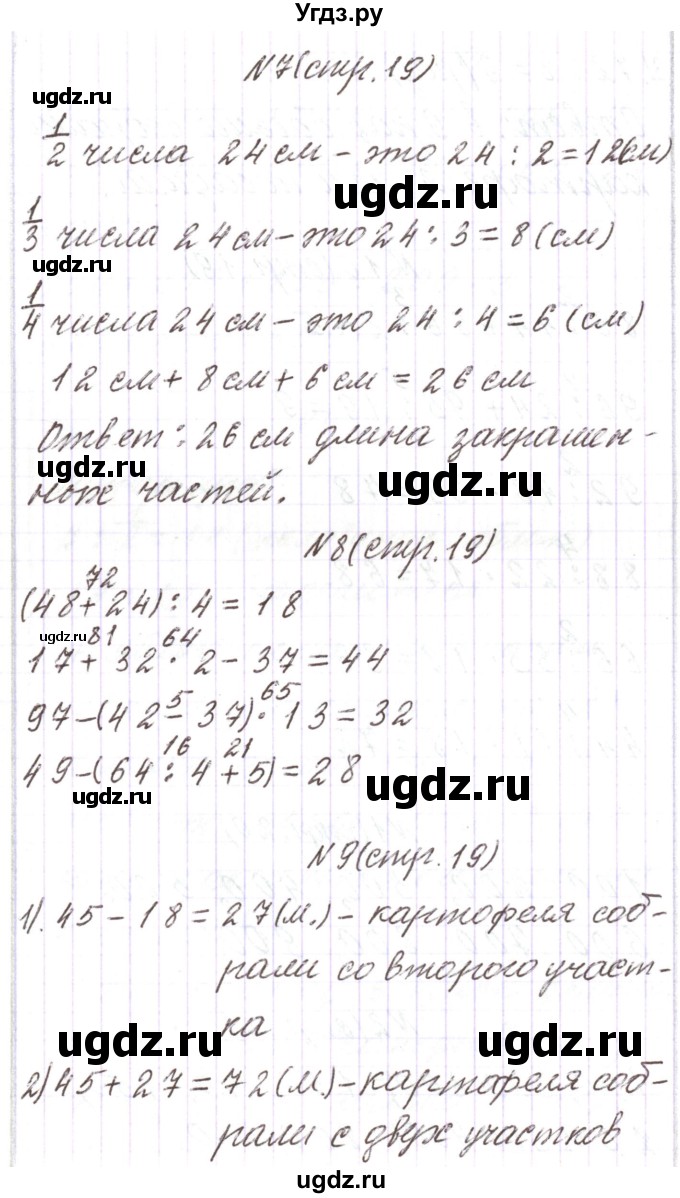 Угдз.ру
N7(стр.19)
ugdz.ru
1/2 числа 24 см - это 24 : 2 = 12(см)
ugdz.ru
1/3 числа 24 см - это 24 : 3 = 8 (см)
ugdz.ru
1/4 числа 24 см - это 24 : 4 = 6 (см)
12 см + 8 см + 6 см = 26 см
Ответ: 26 см длина закрашен-
ugdz.ru
ugdz.ru
ных частей.
N8(стр.19)
72
(48 + 24) : 4 = 18
ugdz.ru
81 64
17 + 32 · 2 - 37 = 44
5 65
97 - (42 - 37) · 13 = 32
16 21
49 - (64 : 4 + 5) = 28
ugdz.ru
ugdz.ru
N9(стр.19)
1). 45 - 18 = 27(м.) - картофеля соб-
рали со второго участ-
ка
ugdz.ru
ugdz.ru
2) 45 + 27 = 72(м.) - картофеля соб-
рали с двух участков
ugdz.ru